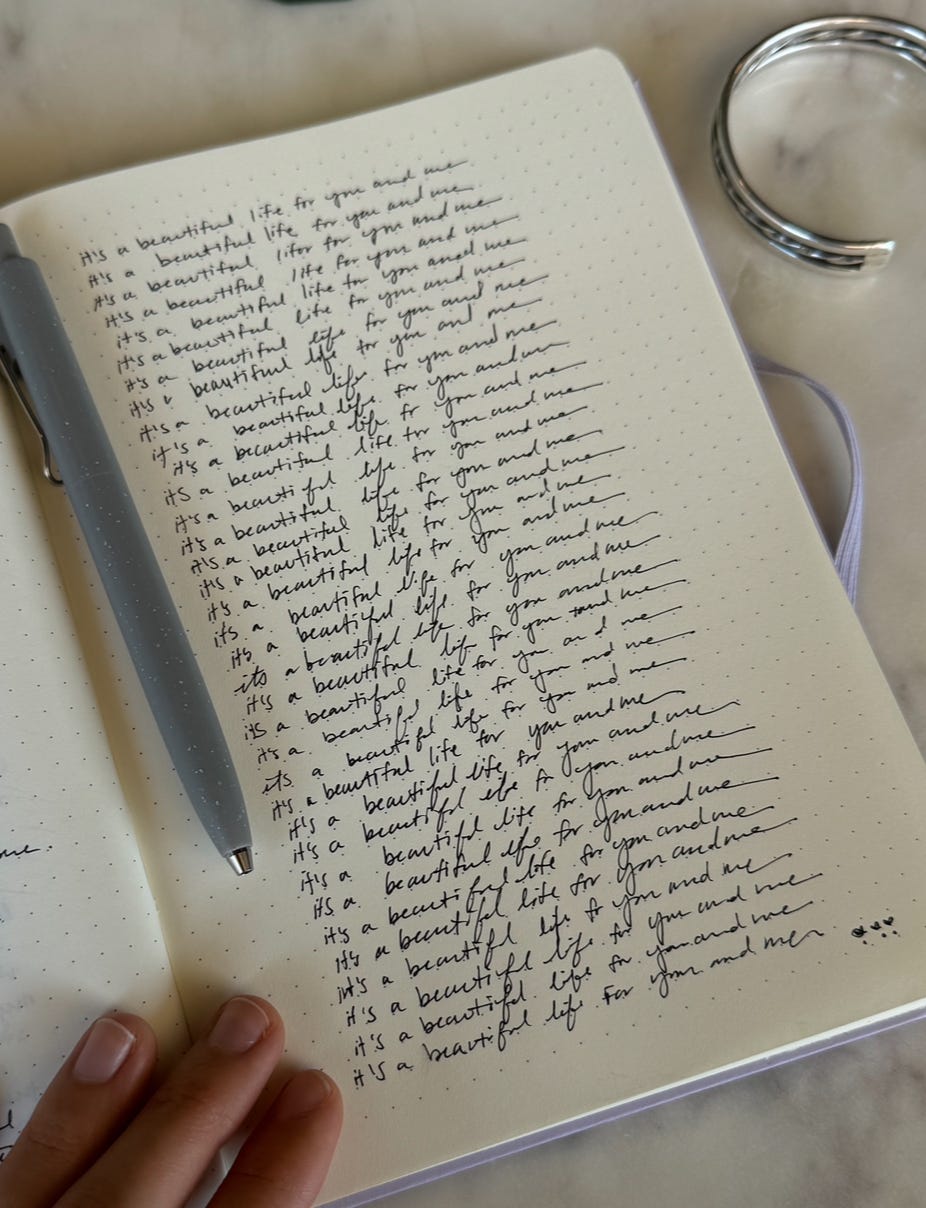 it's a beautiful life for you and me
it's a beautiful life for you and me
it's a beautiful lifor for you and me
it's a beautiful life for you and me
it's a beautiful life for you and me
it's a beautiful life for you and me
it's a beautiful life for you and me
it's a beautiful life for you and me
it's a beautiful life for you and me
it's a beautiful life for you and me
it's a beautiful life for you and me
its a beautiful life for you and me
it's a beautiful life for you and me
it's a beautiful life for you and me
it's a beautiful life for you and me
it's a beautiful life for you and me
it's a beautiful life for you and me
its a beautiful life for you and me
it's a beautiful life for you and me
its a beautiful life for you and me
it's a beautiful life for you and me
its a beautiful life for you and me
it's a beautiful life for you and me
its a beautiful life for you and me
it's a beautiful life for you and me
it's a beautiful life for you and me
it's a beautiful life for you and me
it's a beautiful life for you and me
its a beautiful life for you and me
it's a beautiful life for you and me
it's a beautiful life for you and me
it's a beautiful life for you and me
it's a beautiful life for you and me
it's a beautiful life for you and me
it's a beautiful life for you and me